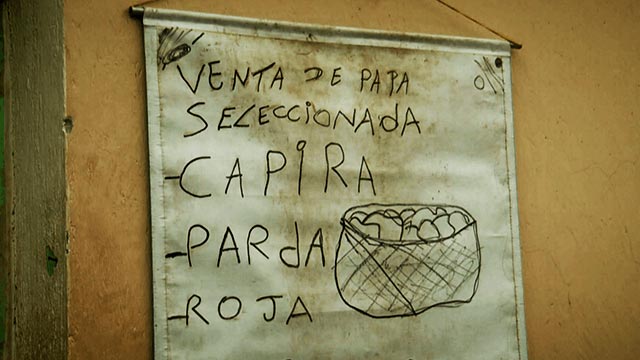 VENTA DE PAPA
SELECCIONAdA
-CAPiRA
-PARdA
-ROJA